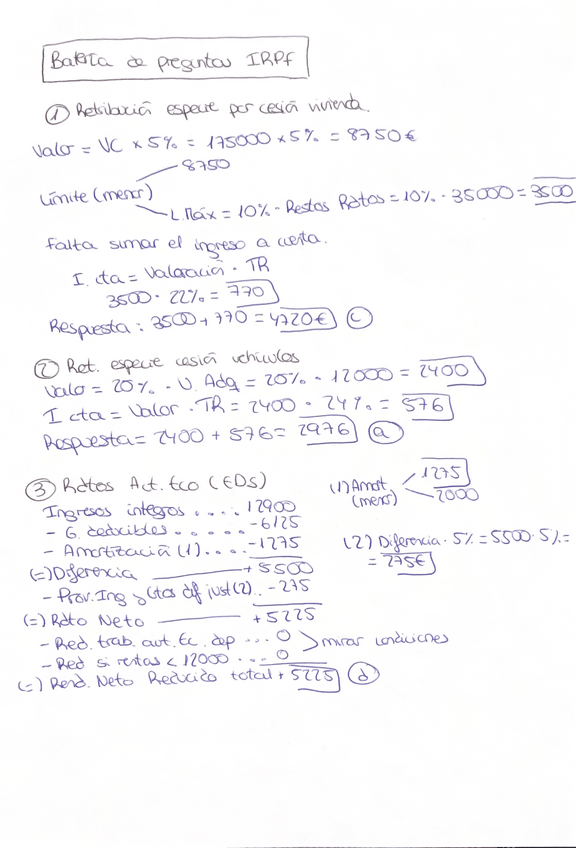 Batería de preguntas IRPf
① Retribución especie por cesión vivienda.
Valor = VC x 5% = 175000 x 5% = 8750€
8750
Límite (menor)
L. Máx = 10% · Restos Rdtos = 10% · 35000 = 3500
Falta sumar el ingreso a cuenta.
I. cta = Valoración · TR
3500 · 22% = 770
Respuesta: 3500 + 770 = 4720€ ⓒ
② Ret. especie cesión vehículos
Valor = 20% · V. Adq = 20% · 12000 = 2400
I cta = Valor · TR = 2400 · 24% = 576
Respuesta = 2400 + 576 = 2976 ⓐ
③ Rdtos Act. Eco (EDS)
(1) Amort. (menor) 1275
2000
Ingresos íntegros .... 12900
- G. deducibles ..... -6125
- Amortización (1).... -1275
(2) Diferencia · 5% = 5500 · 5% =
= 275€
(=) Diferencia + 5500
- Prov. Ing y Gtos dif just (2).. -275
(=) Rdto Neto + 5225
- Red. trab. aut. Ec. dep ... 0
mirar condiciones
- Red si rentas < 12000 ... 0
(=) Rend. Neto Reducido total + 5225 ⓓ